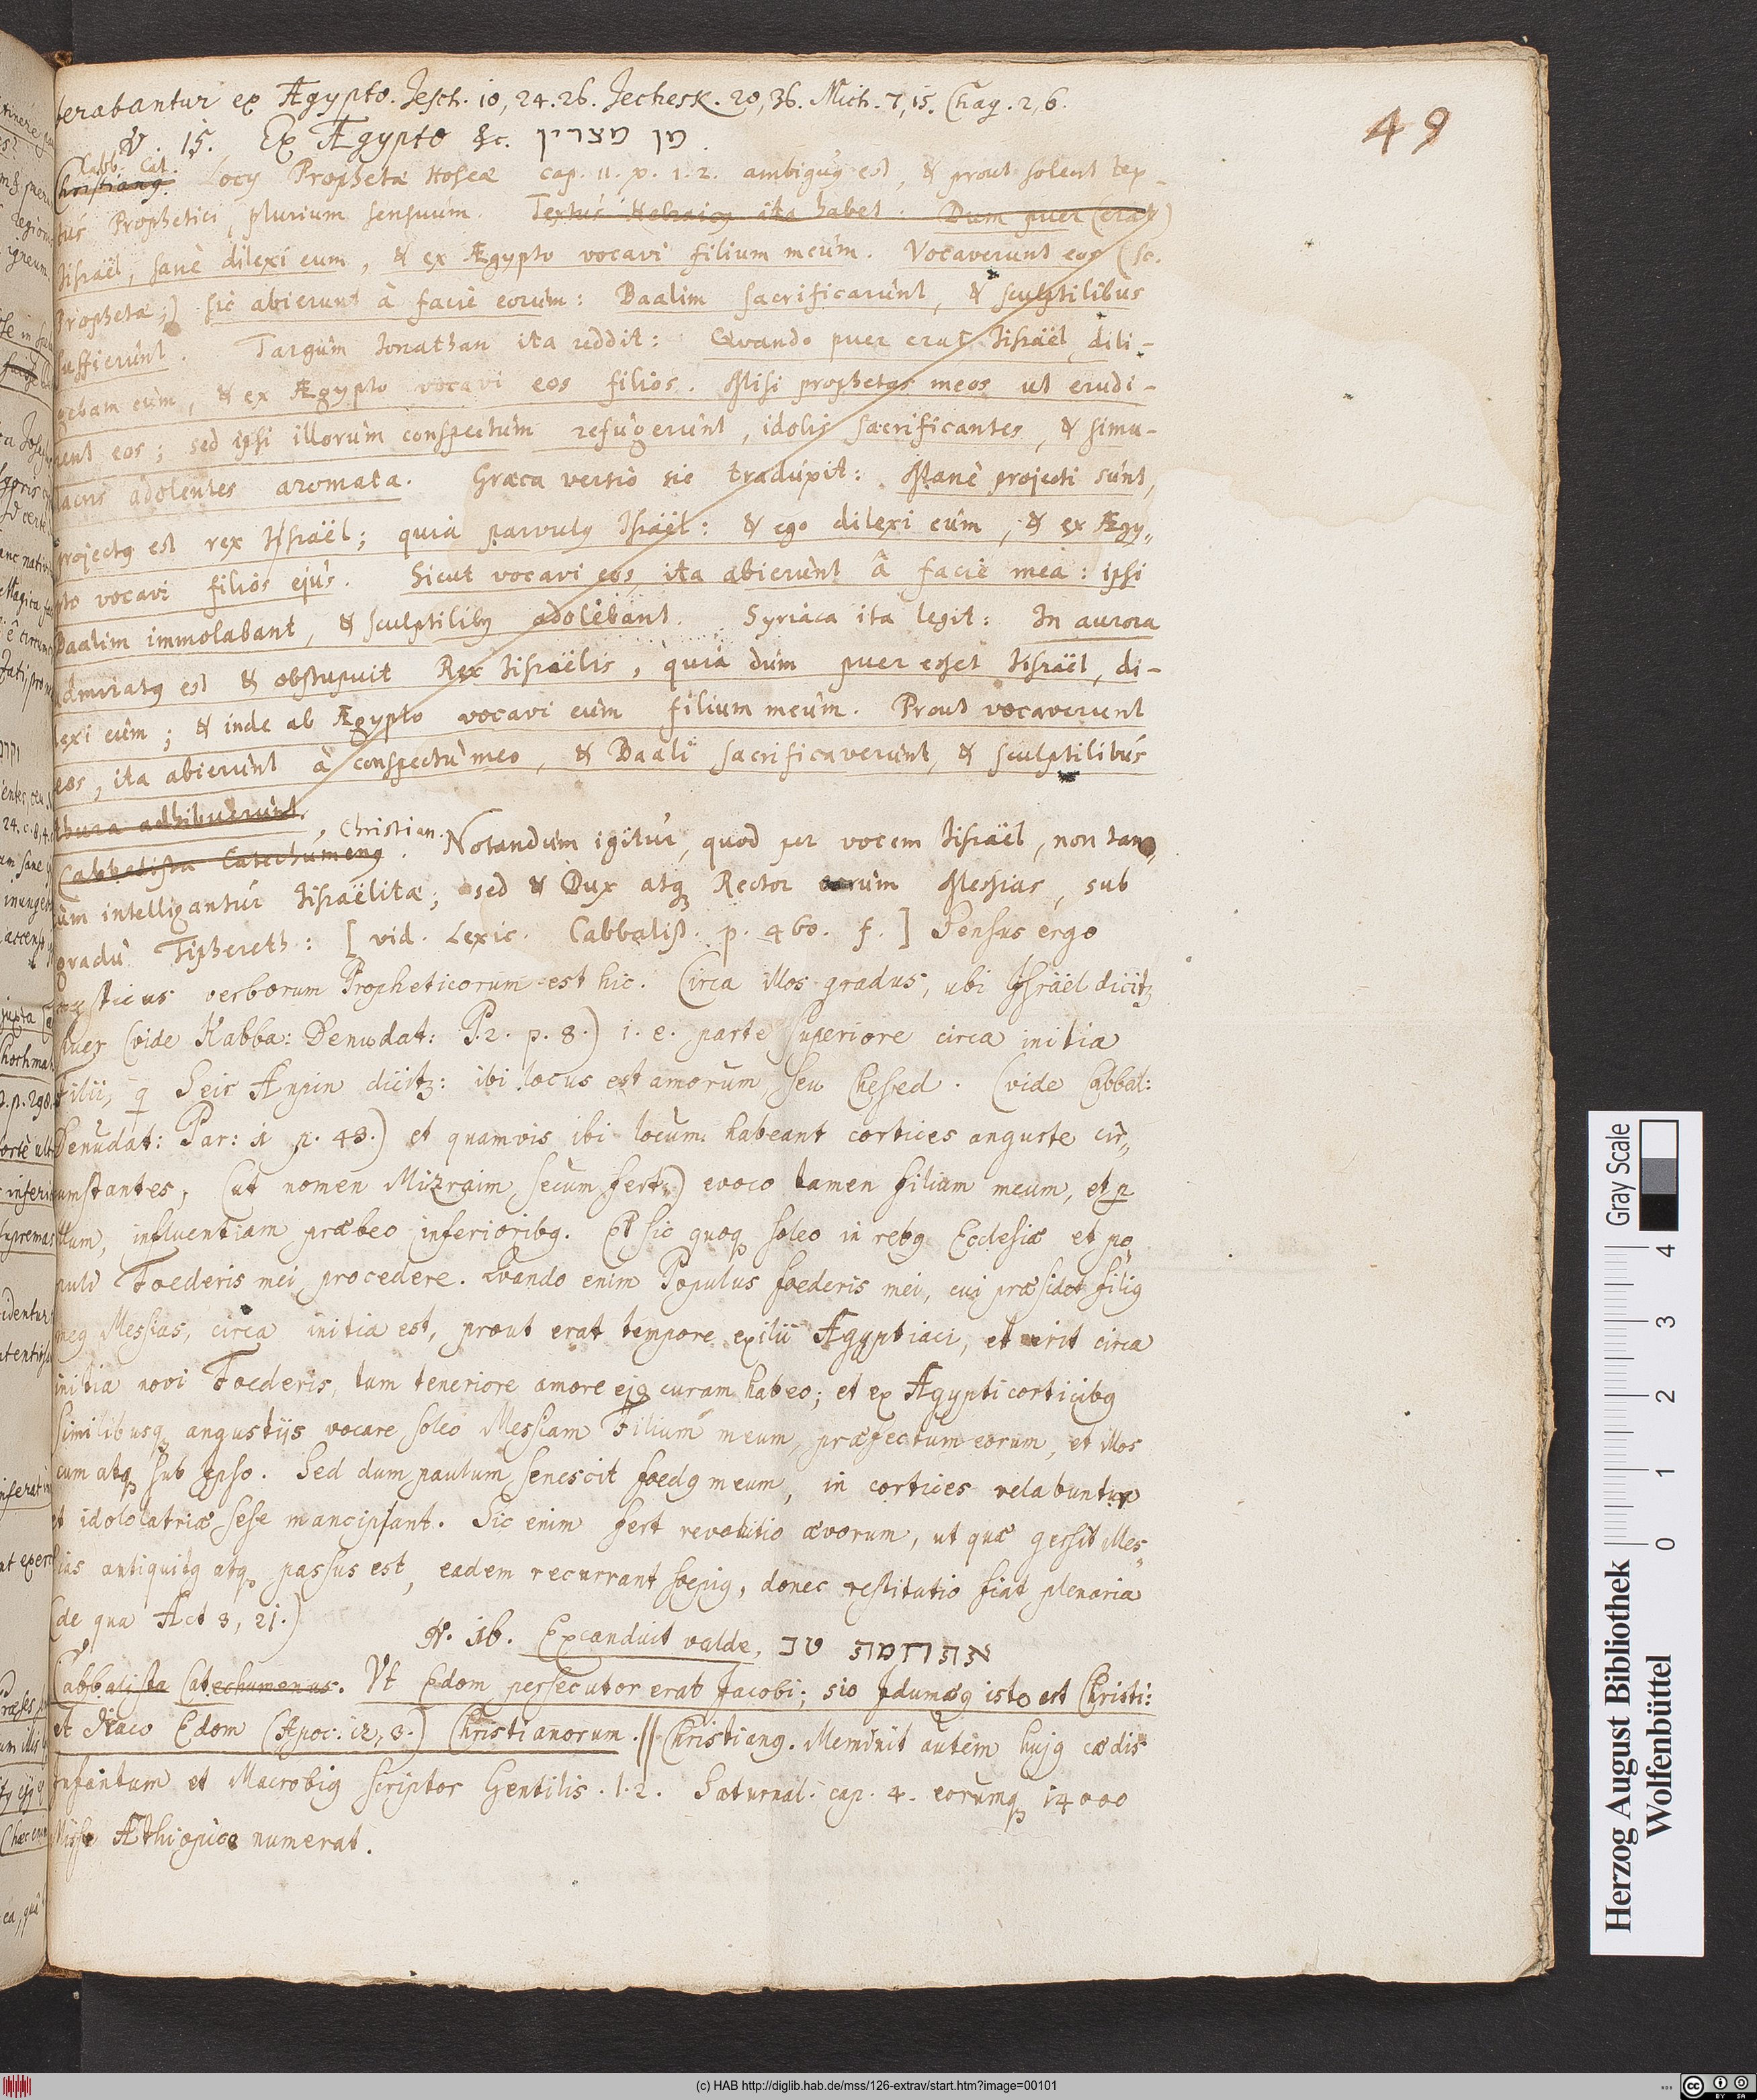 49
terabantur ex Ægypto. Jesch. 10, 24. 26. Jechesk. 20, 36. Mich. 7, 15. Chag. 2, 6.
V. 15. Ex Ægypto &c. מן מצרין.
Cabb. Cat.
Christiang. Locy Prophetæ Hoseæ cap. 11. v. 1. 2. ambiguy est, & prout solent tex-
tus Prophetici, plurium sensuum. Textus Hebraicy ita habet. Dum puer (erat)
Jisraël, sanè dilexi eum, & ex Ægypto vocavi filium meum. Vocaverunt eos (sc.
Prophetæ;) sic abierunt à facie eorum: Baalim sacrificarunt, & sculptilibus
suffierunt. Targum Jonathan ita reddit: Quando puer erat Jisraël, dili-
gebam eum, & ex Ægypto vocavi eos filios. Misi prophetas meos ut erudi-
rent eos; sed ipsi illorum conspectum refugerunt, idolis sacrificantes, & simu-
lacris adolentes aromata. Græca versio sic traduxit: Manè projecti sunt,
projecty est rex Jisraël; quia parvuly Jisraël: & ego dilexi eum, & ex Ægy„
pto vocavi filios ejus. Sicut vocavi eos, ita abierunt â facie mea: ipsi
Baalim immolabant, & sculptiliby adolebant. Syriaca ita legit: In aurora
admiraty est & obstupuit Rex Jisraëlis, quia dum puer esset Jisraël, di-
lexi eum; & inde ab Ægypto vocavi eum filium meum. Prout vocaverunt
eos, ita abierunt à conspectu meo, & Baali sacrificaverunt, & sculptilibus
thura adhibuerunt.
Cabbalista Catechumeng, Christian. Notandum igitur, quod per vocem Jisraël, non tan„
tum intelligantur Jisraëlitæ; sed & Dux atq Rector eorum Messias, sub
gradu Tiphereth: [vid. Lexic. Cabbalist. p. 460. f.] Sensus ergo
mysticus verborum Propheticorum est hic. Circa illos gradus, ubi Jisraël dicitz
puer (vide Kabba: Denudat: P. 2. p. 8.) i. e. parte superiore circa initia
Filii, q Seir Anpin dicitz: ibi locus est amorum, seu Chesed. (vide Cabbal:
Denudat: Par: 1 p. 43.) et quamvis ibi locum habeant cortices anguste cir„
cumstantes, (ut nomen Mizraim secum fert,) evoco tamen filium meum, et p
illum, influentiam præbeo inferioribg. Et sic quoq soleo in rebg Ecclesiæ et po„
puli Foederis mei procedere. Quando enim Populus foederis mei, cui præsidet filig
meg Messias, circa initia est, prout erat tempore exilii Ægyptiaci, et erit circa
initia novi Foederis, tum teneriore amore ejg curam habeo; et ex Ægypti corticibg
similibusq angustijs vocare soleo Messiam Filium meum, præfectum eorum, et illos
cum atq sub ipso. Sed dum paulum senescit foedg meum, in cortices relabuntur
et idololatriæ sese mancipant. Sic enim fert revolutio ævorum, ut quæ gessit Mes„
sias antiquitg atq passus est, eadem recurrant sæpig, donec restitutio fiat plenaria
(de qua Act 3, 21.)
V. 16. Excanduit valde, אתחמת טב
Cabbalista Catechumenus. Ut Edom persecutor erat Jacobi; sic Idumæg iste est Christi:
et Draco Edom (Apoc. 12, 3.) Christianorum. || Christiang. Meminit autem hujg cædis
infantum et Macrobig scriptor Gentilis. l. 2. Saturnal. cap. 4. eorumq 14000
Missa Æthiopica numerat.
Gray Scale
0 1 2 3 4
Herzog August Bibliothek
Wolfenbüttel
(c) HAB http://diglib.hab.de/mss/126-extrav/start.htm?image=00101